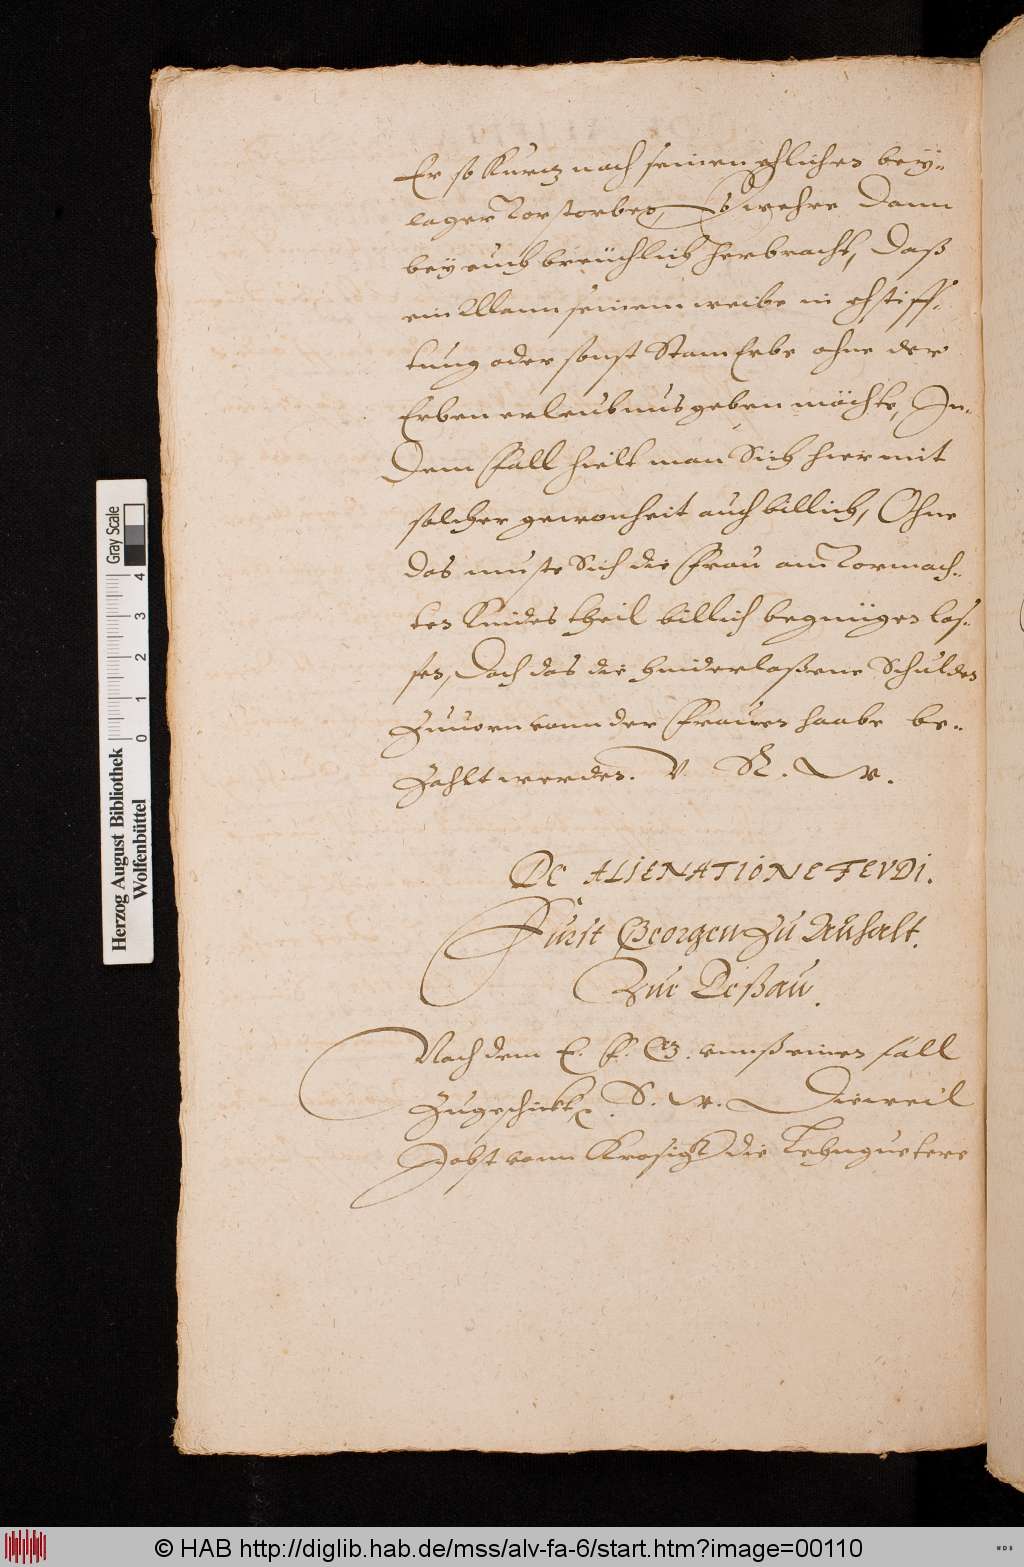 Er so kurtz nach seinen ehlichen bey-
lager Vorstorben, Es wehre dann
bey euch breuchlich herbracht, Daß
ein Mann seinem weibe in ehstiff-
tung oder sonst StamErbe ohne der
Erben erleubnus geben möchte, In
Dem fall hielt man Sich hiermit
solcher gewonheit auch billich, Ohne
das muste Sich die Frau am Vormach-
ten Kindes theil billich begnügen las-
sen, Doch das die hinderlaßene Schulden
Zuuorn vonn der Frauen haabe be-
Zahlt werden. V. R. W.
DE ALIENATIONE FEVDI.
Fürst Georgen Zu Anhalt.
Zue Deßau.
Nach dem E. F. G. vnnß einen fall
Zugeschickt. S. W. Dieweil
Jobst vonn Krosigk die Lehnguetere
Herzog August Bibliothek
Wolfenbüttel
0 1 2 3 4
Gray Scale
© HAB http://diglib.hab.de/mss/alv-fa-6/start.htm?image=00110